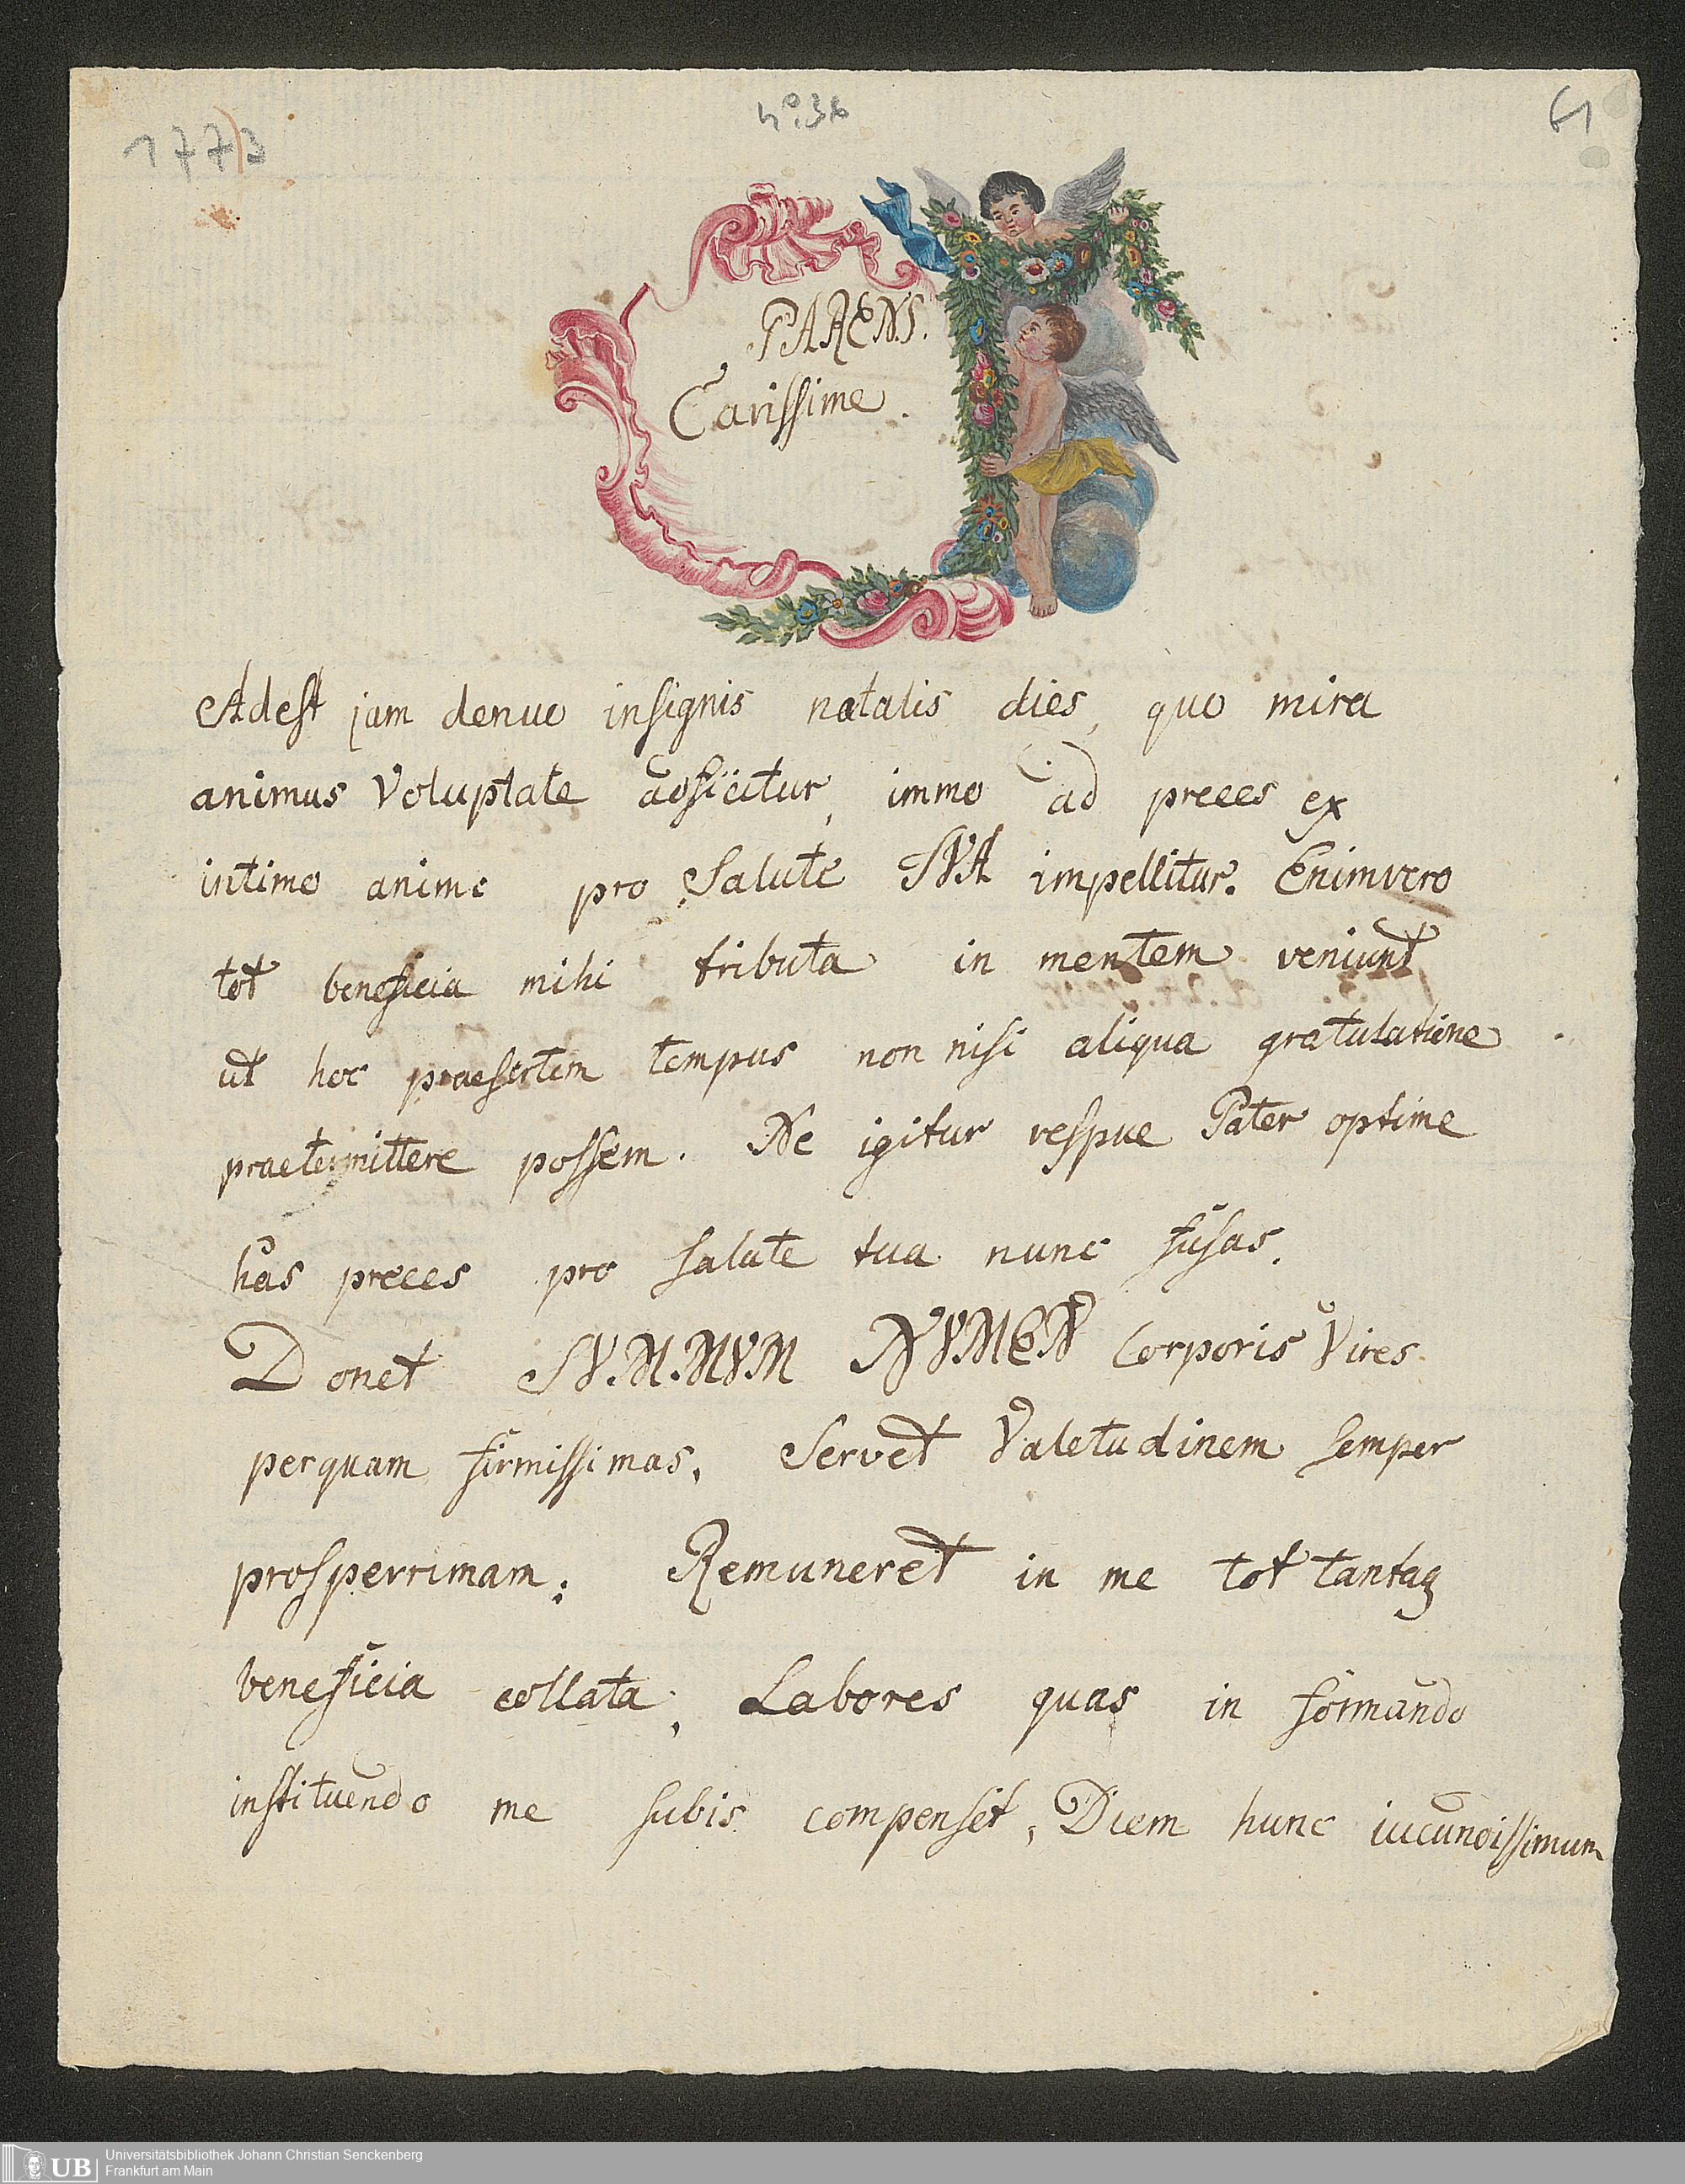 1773
no: 36
61
PARENS.
Carissime.
Adest jam denuo insignis natalis dies, quo mira
animus Voluptate adficitur, immo ad preces ex
intimo animo pro Salute SVA impellitur. Enimvero
tot beneficia mihi tributa in mentem veniunt
ut hoc praesertim tempus non nisi aliqua gratulatione
praetermittere possem. Ne igitur respue Pater optime
has preces pro salute tua nunc fusas.
Donet SVMMVM NVMEN Corporis Vires
perquam firmissimas, Servet Valetudinem semper
prosperrimam; Remuneret in me tot tantaq
beneficia collata; Labores quas in formando
instituendo me subis compenset, Diem hunc iucundissimum
UB
Universitätsbibliothek Johann Christian Senckenberg
Frankfurt am Main